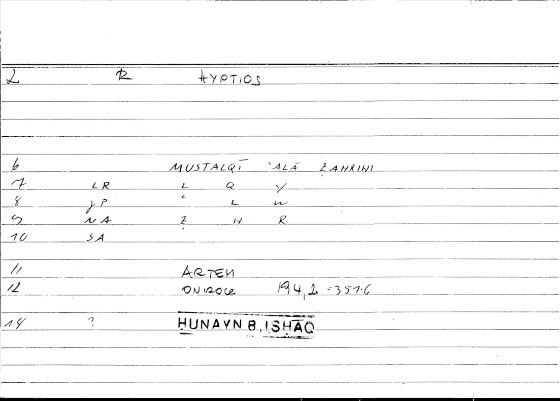 2 R HYPTIOS
6 MUSTALQĪ ʿALĀ ẒAHRIHI
7 LR L Q Y
8 JP ʿ L W
9 NA Ẓ H R
10 SA
11 ARTEM
12 ONIROCR 194,2 = 351.6
14 ? ḤUNAYN B. ISḤĀQ